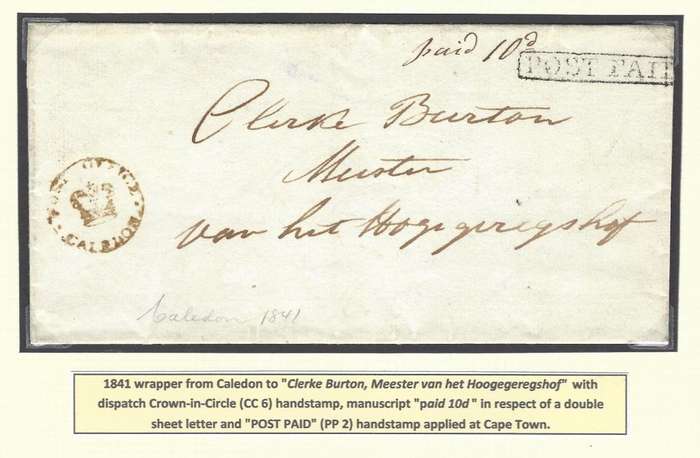 paid 10d
POST PAID
Clerke Burton
Meester
van het Hogegeregshof
POST OFFICE
CALEDON
Caledon 1841
1841 wrapper from Caledon to "Clerke Burton, Meester van het Hoogegeregshof" with
dispatch Crown-in-Circle (CC 6) handstamp, manuscript "paid 10d" in respect of a double
sheet letter and "POST PAID" (PP 2) handstamp applied at Cape Town.